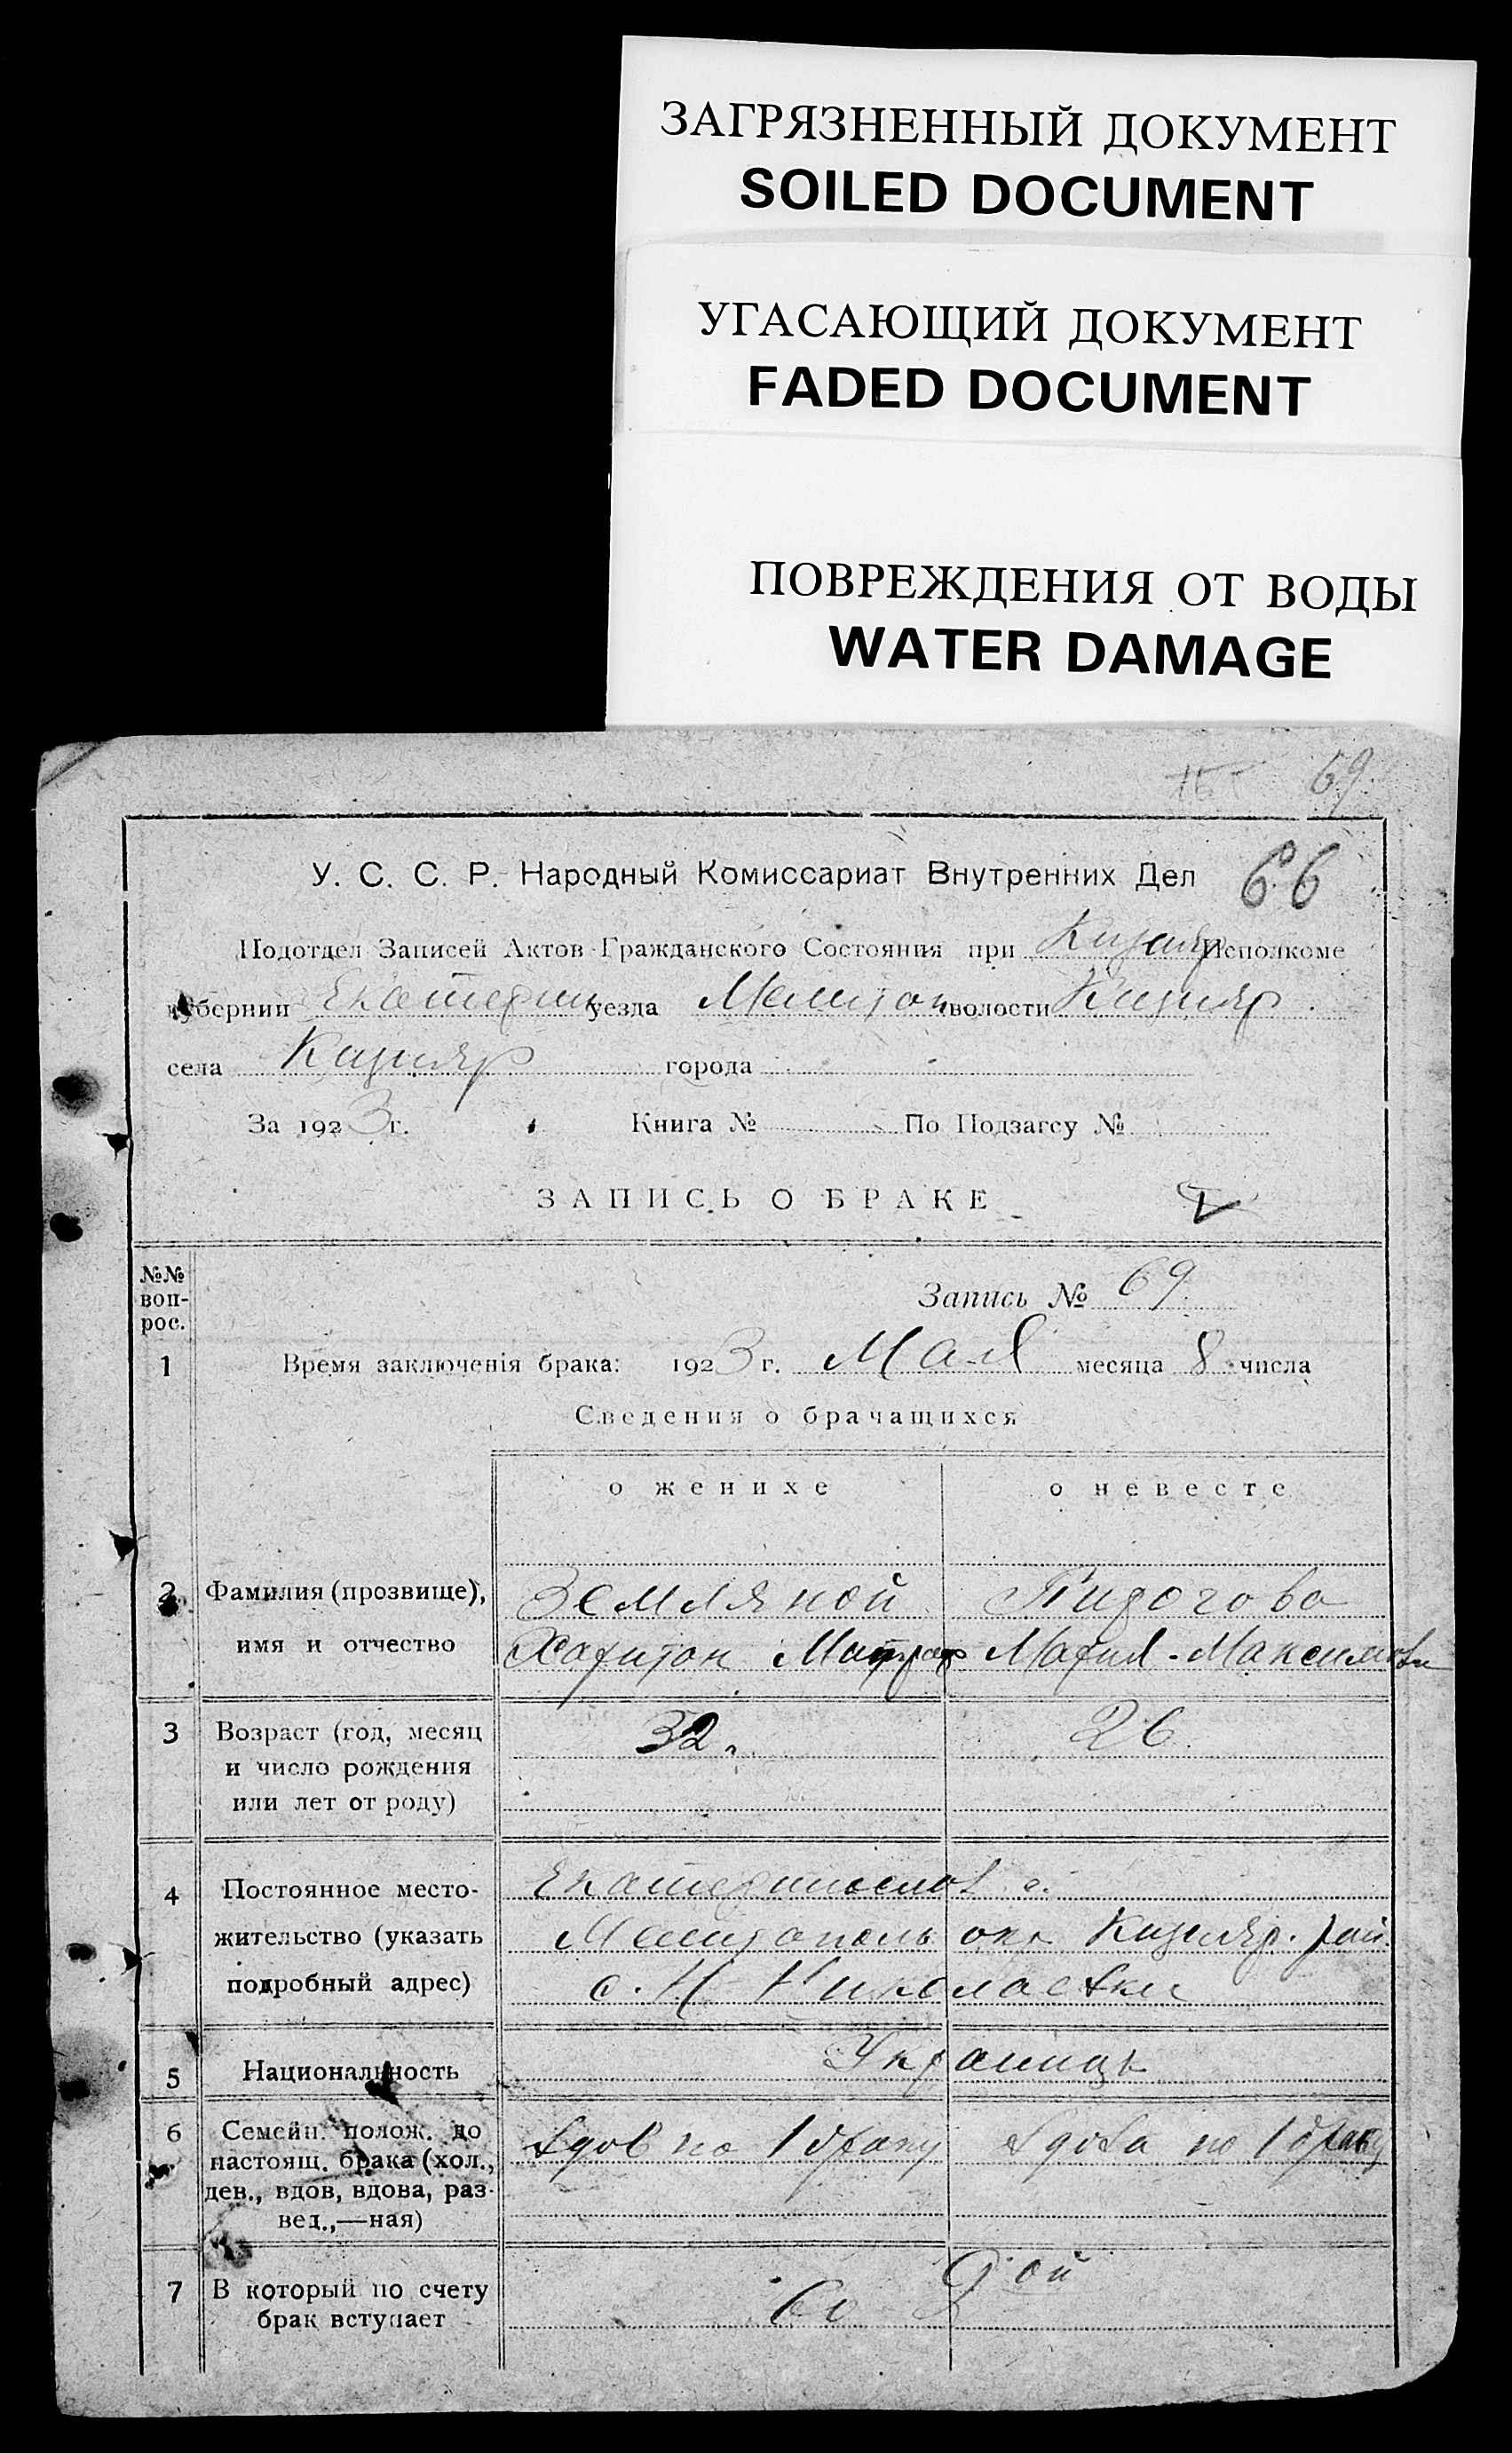 ЗАГРЯЗНЕННЫЙ ДОКУМЕНТ
SOILED DOCUMENT
УГАСАЮЩИЙ ДОКУМЕНТ
FADED DOCUMENT
ПОВРЕЖДЕНИЯ ОТ ВОДЫ
WATER DAMAGE
69
У. С. С. Р. Народный Комиссариат Внутренних Дел 66
Подотдел Записей Актов Гражданского Состояния при Кизияр Исполкоме
губернии Екатерин уезда Мелитоп волости Кизияр.
села Кизияр города
За 1923 г. Книга № По Подзагсу №
ЗАПИСЬ О БРАКЕ
№№ воп-рос.
Запись № 69
1 Время заключенія брака: 1923 г. Мая месяца 8 числа
Сведения о брачащихся
о женихе о невесте
2 Фамилия (прозвище), Земляной
имя и отчество Харитон Митроф Мария Максимовн
3 Возраст (год, месяц 32 26
и число рождения
или лет от роду)
4 Постоянное место- Екатеринослав г.
жительство (указать Мелитополь окр Кизияр. рай.
подробный адрес) с. Н Николаевки
5 Национальность Украинцы
6 Семейн. полож. до вдов по 1 браку вдова по 1 браку
настоящ. брака (хол.,
дев., вдов, вдова, раз-
вед.,—ная)
7 В который по счету во 2ой
брак вступает